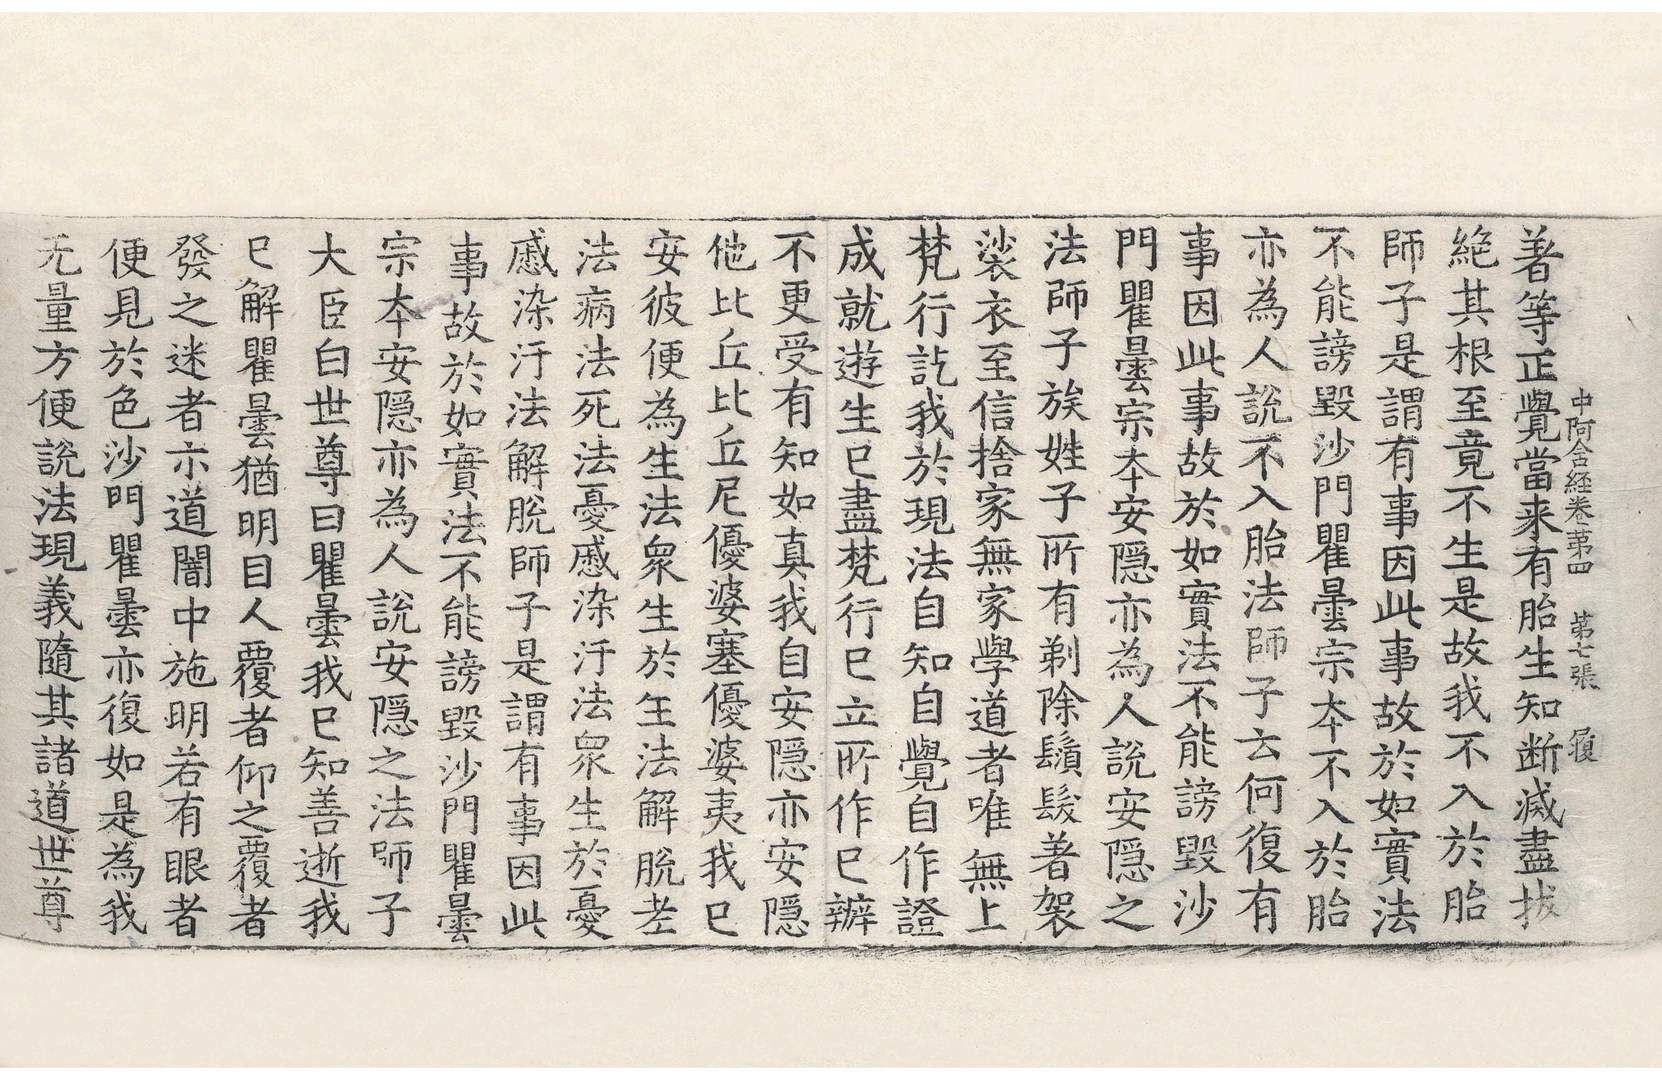 中阿含経卷第四　第七張　履
著等正覺當来有胎生知断滅盡拔
絶其根至竟不生是故我不入於胎
師子是謂有事因此事故於如實法
不能謗毀沙門瞿曇宗夲不入於胎
亦為人說不入胎法師子云何復有
事因此事故於如實法不能謗毀沙
門瞿曇宗夲安隱亦為人說安隱之
法師子族姓子所有剃除鬚髮著袈
裟衣至信捨家無家學道者唯無上
梵行訖我於現法自知自覺自作證
成就遊生已盡梵行已立所作已辦
不更受有知如真我自安隱亦安隱
他比丘比丘尼優婆塞優婆夷我已
安彼便為生法衆生於生法解脫老
法病法死法憂慼染汙法衆生於憂
慼染汙法解脫師子是謂有事因此
事故於如實法不能謗毀沙門瞿曇
宗夲安隱亦為人說安隱之法師子
大臣白世尊曰瞿曇我已知善逝我
已解瞿曇猶明目人覆者仰之覆者
發之迷者示道闇中施明若有眼者
便見於色沙門瞿曇亦復如是為我
无量方便說法現義隨其諸道世尊